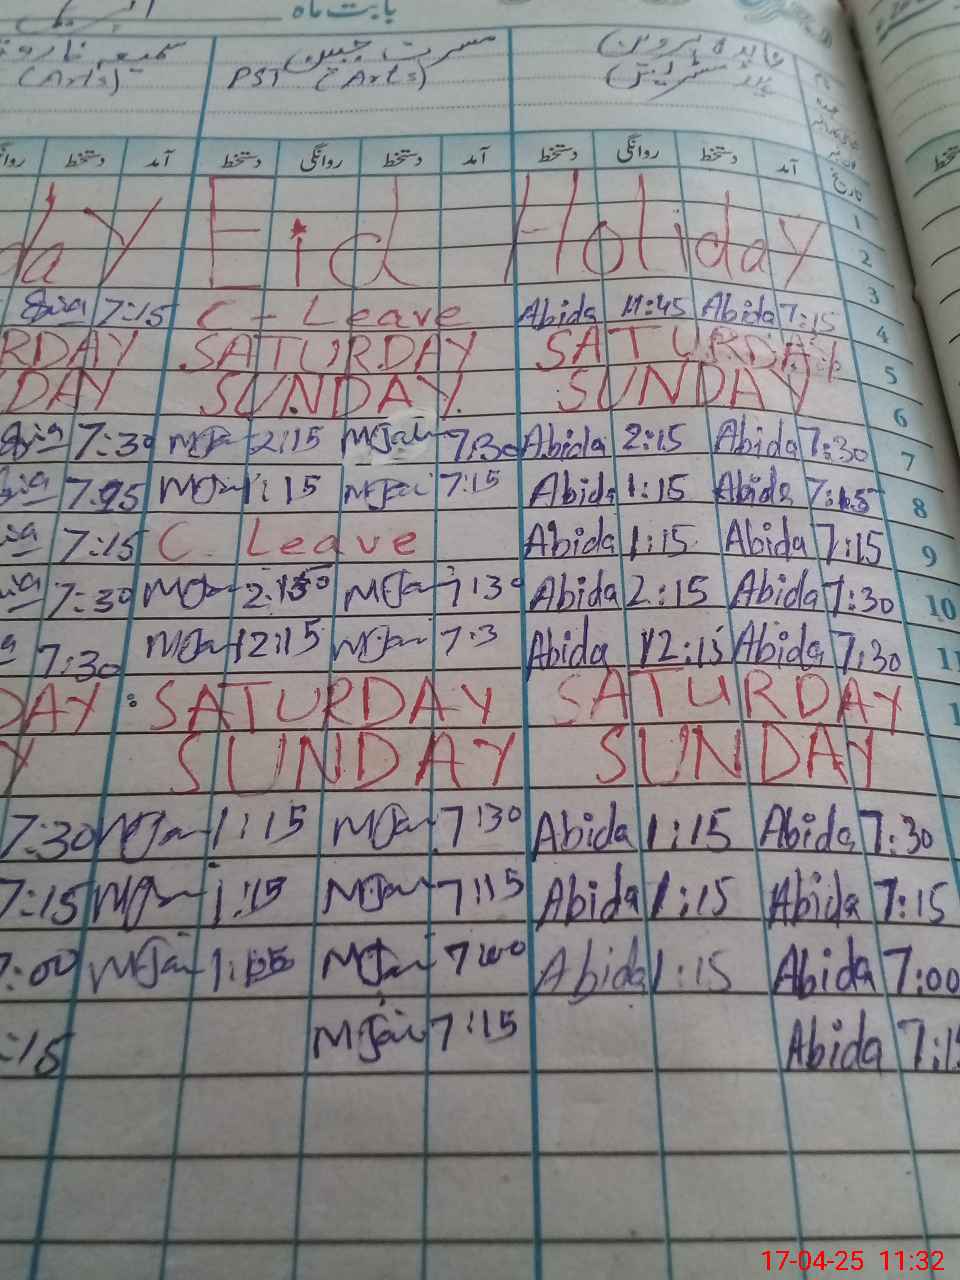 بابت ماہ
عابدہ پروین مسرت جبیں
PST (Arts) (Arts)
تاریخ آمد دستخط روانگی دستخط آمد دستخط روانگی دستخط آمد دستخط
day Eid Holiday 1 2 3
7:15 C - Leave Abida 11:45 Abida 7:15 4
RDAY SATURDAY SATURDAY 5
DAY SUNDAY SUNDAY 6
7:30 MJan 2:15 MJan 7:30 Abida 2:15 Abida 7:30 7
MJan 1:15 MJan 7:15 Abida 1:15 Abida 8
7:15 C Leave Abida 1:15 Abida 7:15 9
7:30 MJan MJan 7:30 Abida 2:15 Abida 7:30 10
7:30 MJan 12:15 MJan 7:3 Abida 12:15 Abida 7:30 11
DAY : SATURDAY SATURDAY 1
Y SUNDAY SUNDAY
7:30 MJan 1:15 MJan 7:30 Abida 1:15 Abida 7:30
7:15 MJan 1:15 MJan 7:15 Abida 1:15 Abida 7:15
7:00 MJan MJan 7:00 Abida 1:15 Abida 7:00
:15 MJan 7:15 Abida 7:15
17-04-25 11:32